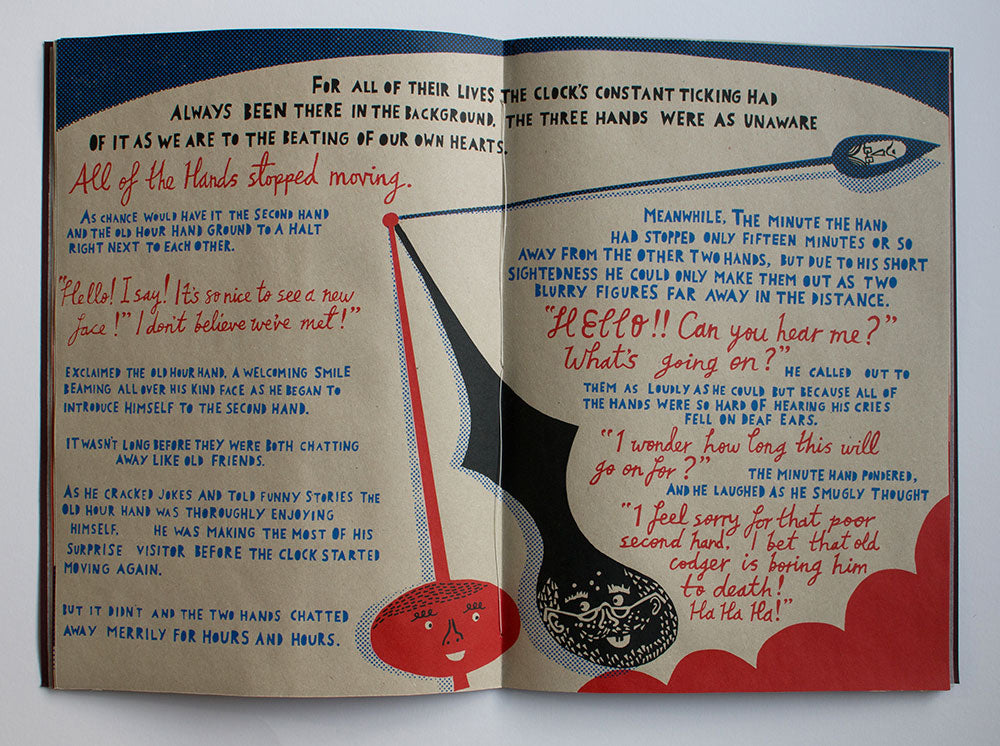 FOR ALL OF THEIR LIVES THE CLOCK'S CONSTANT TICKING HAD
ALWAYS BEEN THERE IN THE BACKGROUND. THE THREE HANDS WERE AS UNAWARE
OF IT AS WE ARE TO THE BEATING OF OUR OWN HEARTS.
All of the Hands stopped moving.
AS CHANCE WOULD HAVE IT THE SECOND HAND
AND THE OLD HOUR HAND GROUND TO A HALT
RIGHT NEXT TO EACH OTHER.
"Hello! I say! It's so nice to see a new
face!" I don't believe we've met!"
EXCLAIMED THE OLD HOUR HAND, A WELCOMING SMILE
BEAMING ALL OVER HIS KIND FACE AS HE BEGAN TO
INTRODUCE HIMSELF TO THE SECOND HAND.
IT WASN'T LONG BEFORE THEY WERE BOTH CHATTING
AWAY LIKE OLD FRIENDS.
AS HE CRACKED JOKES AND TOLD FUNNY STORIES THE
OLD HOUR HAND WAS THOROUGHLY ENJOYING
HIMSELF. HE WAS MAKING THE MOST OF HIS
SURPRISE VISITOR BEFORE THE CLOCK STARTED
MOVING AGAIN.
BUT IT DIDN'T AND THE TWO HANDS CHATTED
AWAY MERRILY FOR HOURS AND HOURS.
MEANWHILE, THE MINUTE THE HAND
HAD STOPPED ONLY FIFTEEN MINUTES OR SO
AWAY FROM THE OTHER TWO HANDS, BUT DUE TO HIS SHORT
SIGHTEDNESS HE COULD ONLY MAKE THEM OUT AS TWO
BLURRY FIGURES FAR AWAY IN THE DISTANCE.
"HELLO!! Can you hear me?"
What's going on?" HE CALLED OUT TO
THEM AS LOUDLY AS HE COULD BUT BECAUSE ALL OF
THE HANDS WERE SO HARD OF HEARING HIS CRIES
FELL ON DEAF EARS.
"I wonder how long this will
go on for?" THE MINUTE HAND PONDERED,
AND HE LAUGHED AS HE SMUGLY THOUGHT
"I feel sorry for that poor
second hand. I bet that old
codger is boring him
to death!
Ha Ha Ha!"